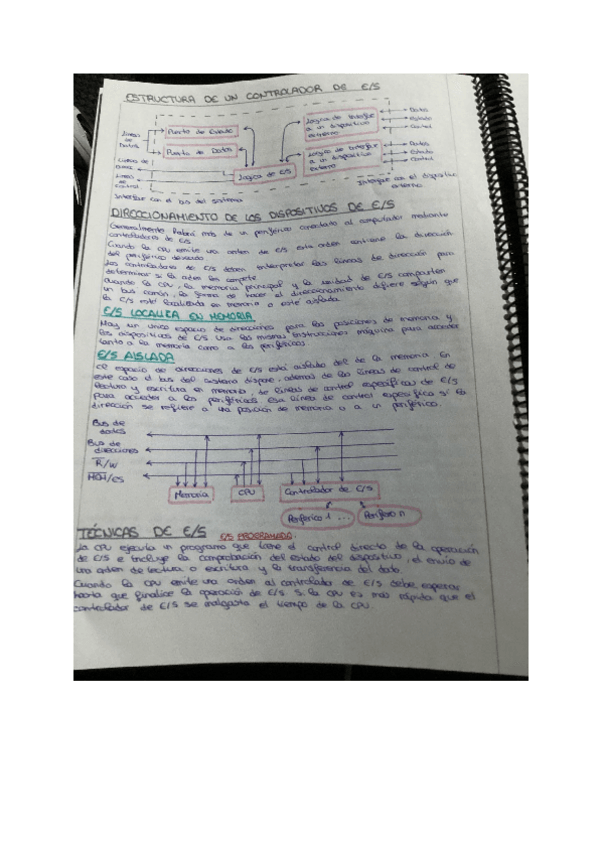 ESTRUCTURA DE UN CONTROLADOR DE E/S
Líneas de Datos
Puerto de Estado
Puerto de Datos
Líneas de
Líneas de control
Lógica de E/S
Lógica de interfaz a un dispositivo externo
Datos
Estado
Control
Lógica de interfaz a un dispositivo externo
Datos
Estado
Control
Interfaz con el bus del sistema
Interfaz con el dispositivo externo
DIRECCIONAMIENTO DE LOS DISPOSITIVOS DE E/S
Generalmente habrá más de un periférico conectado al computador mediante
controladores de E/S.
Cuando la CPU emite una orden de E/S esta orden contiene la dirección
del periférico deseado
Los controladores de E/S deben interpretar las líneas de dirección para
determinar si la orden les compete
Cuando la CPU, la memoria principal y la unidad de E/S comparten
un bus común, la forma de hacer el direccionamiento difiere según que
la E/S esté localizada en memoria o esté aislada.
E/S LOCALIZA EN MEMORIA
Hay un único espacio de direcciones para las posiciones de memoria y
los dispositivos de E/S usa las mismas instrucciones máquina para acceder
tanto a la memoria como a los periféricos
E/S AISLADA
El espacio de direcciones de E/S está aislado del de la memoria. En
este caso el bus del sistema dispone, además de las líneas de control de
lectura y escritura en memoria, de líneas de control específicas de E/S
para acceder a los periféricos. Esa línea de control especifica si la
dirección se refiere a una posición de memoria o a un periférico.
Bus de datos
Bus de direcciones
R/W
MEM/ES
Memoria
CPU
Controlador de E/S
Periférico 1 ...
Periférico n
TÉCNICAS DE E/S E/S PROGRAMADA:
La CPU ejecuta un programa que tiene el control directo de la operación
de E/S e incluye la comprobación del estado del dispositivo, el envío de
una orden de lectura o escritura y la transferencia del dato.
Cuando la CPU emite una orden al controlador de E/S debe esperar
hasta que finalice la operación de E/S. Si la CPU es más rápida que el
controlador de E/S se malgasta el tiempo de la CPU.